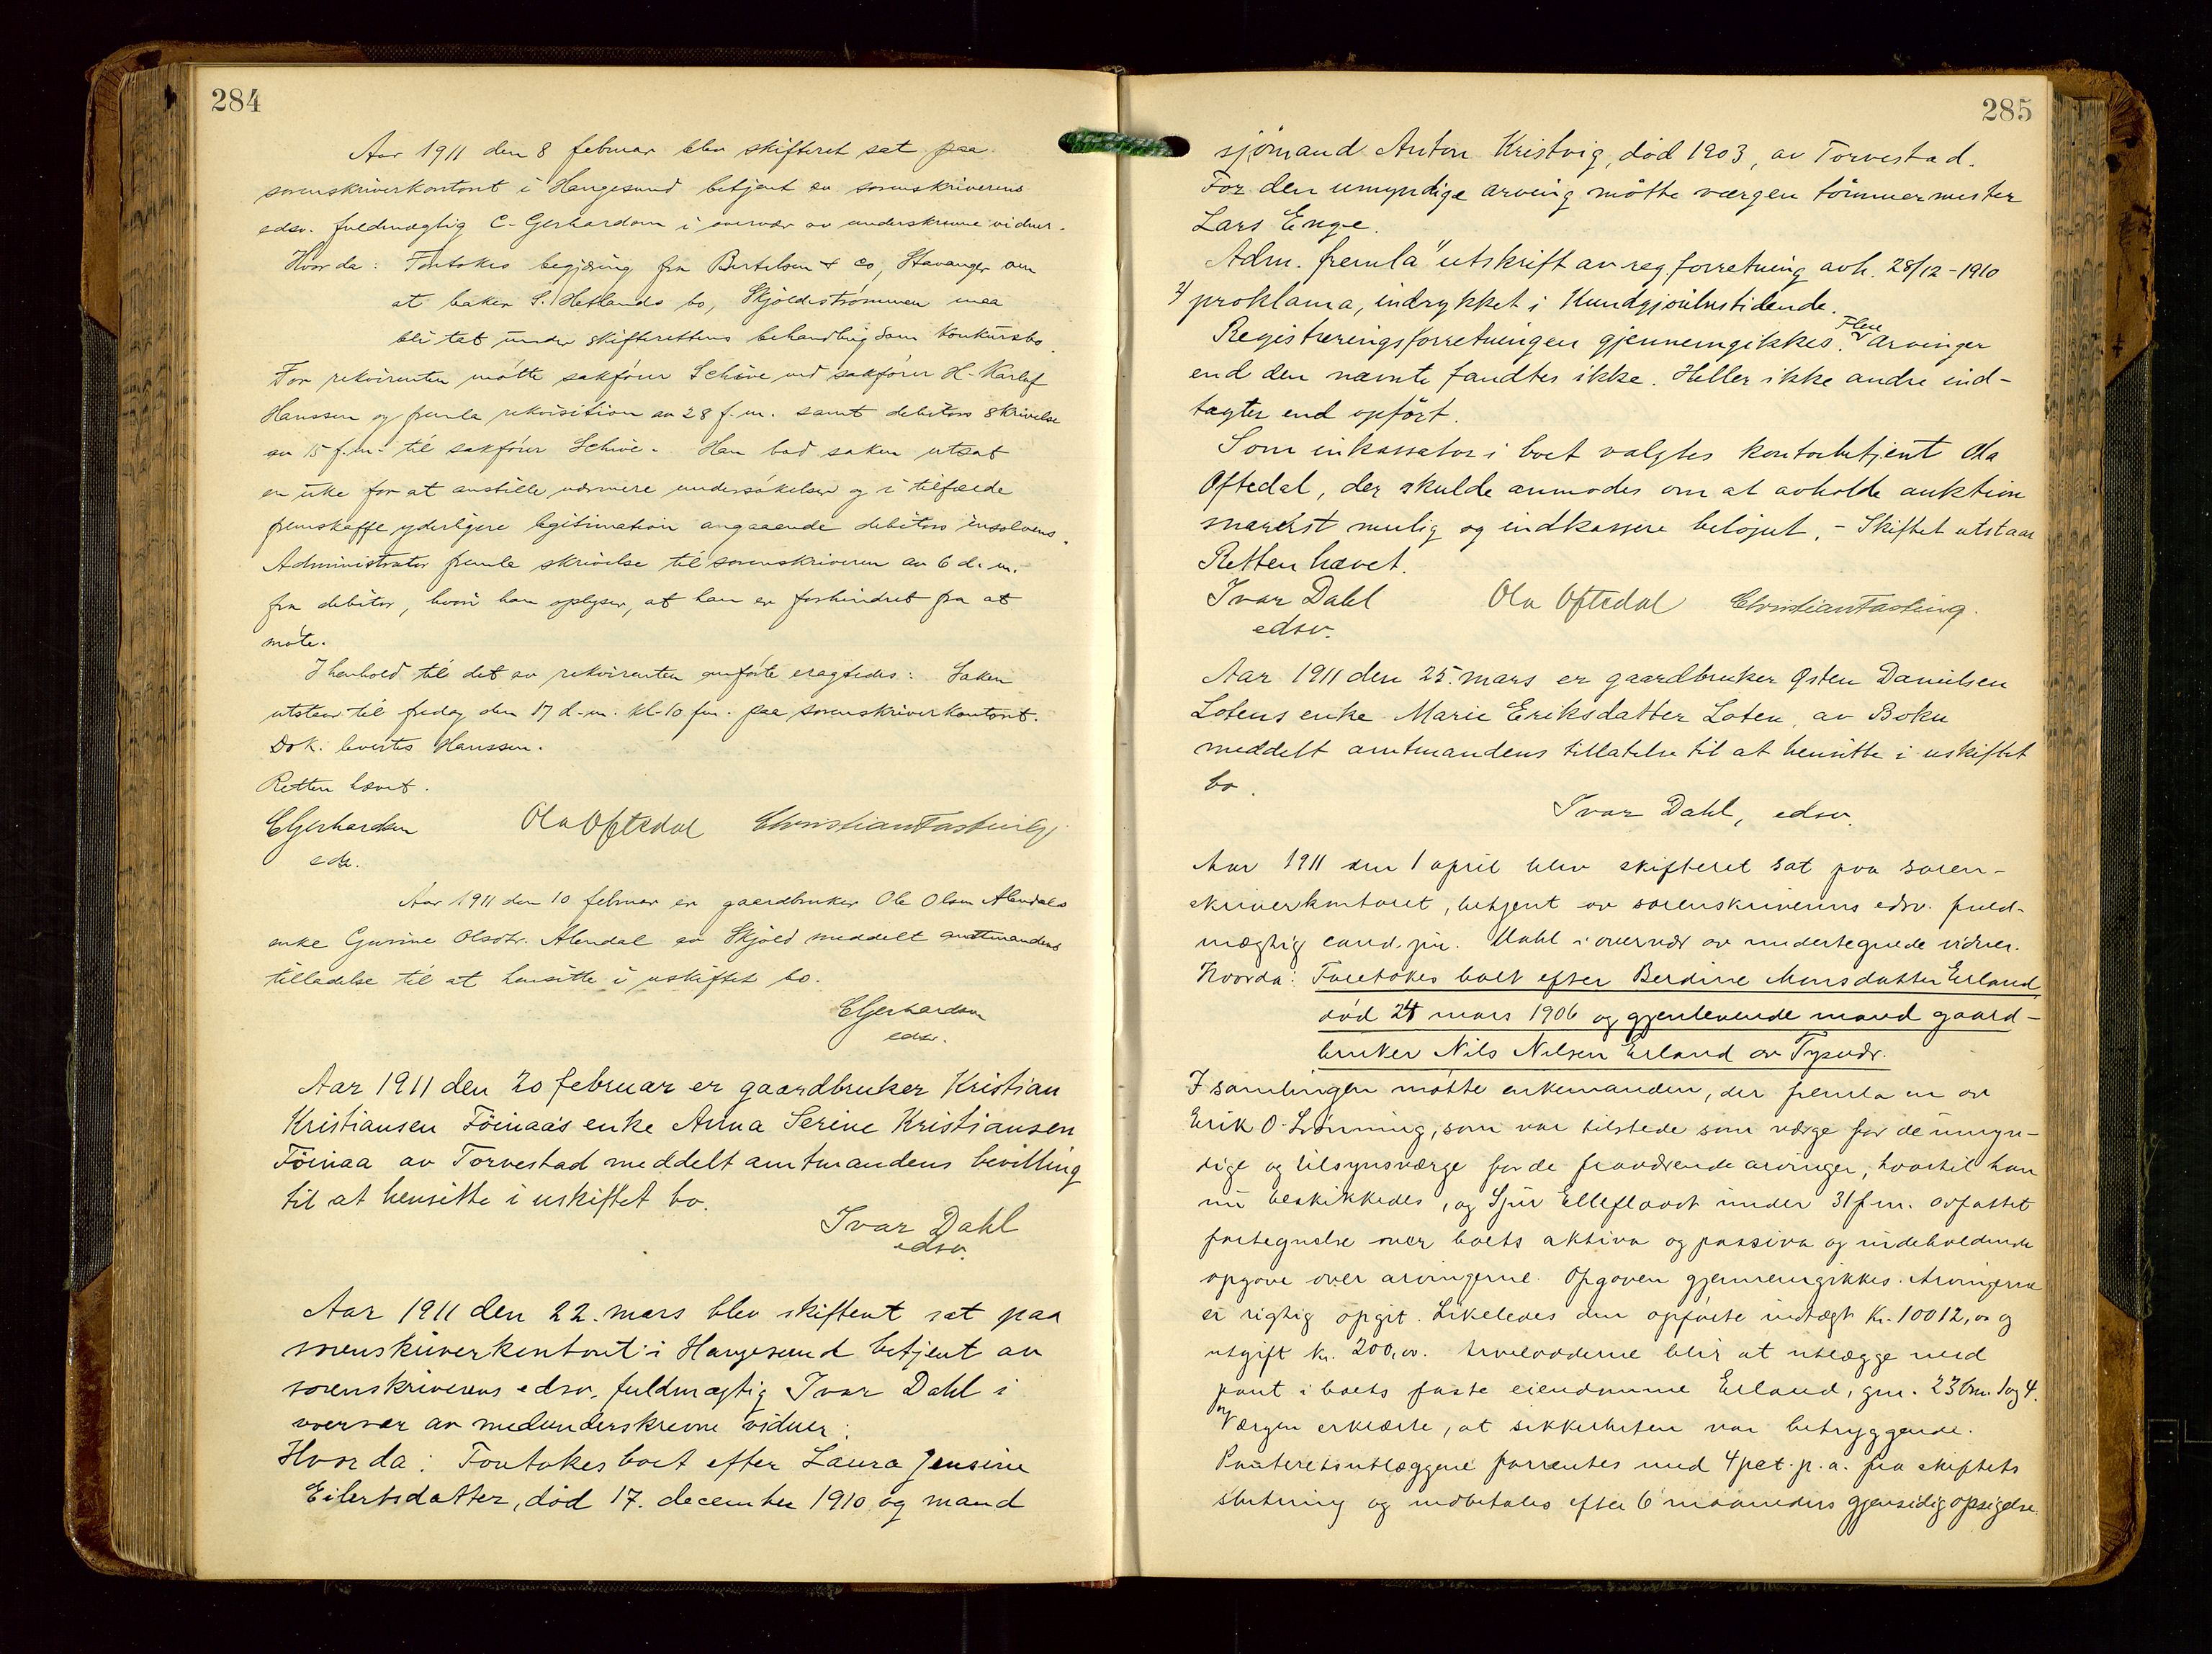 284
Aar 1911 den 8 februar blev skifteret sat paa
sorenskriverkontoret i Haugesund betjent av sorenskriverens
edsv. fuldmægtig C. Gerhardsen i overvær av underskrevne vidner.
Hvorda: Foretokes begjæring fra Bertelsen & Co, Stavanger om
at baker S. Hetlands bo, Skjoldestrømmen maa
bli tat under skifterettens behandling som konkursbo.
For rekvirenten møtte sakfører Schive ved sakfører H. Karluf
Hanssen og fremla rekvisition av 28 f.m. samt debitors skrivelse
av 15 f.m. til sakfører Schive. Han bad saken utsat
en uke for at anstille nærmere undersøkelser og i tilfælde
fremskaffe yderligere legitimation angaaende debitors insolvens.
Administrator fremla skrivelse til sorenskriveren av 6 d.m.
fra debitor, hvori han oplyser, at han er forhindret fra at
møte.
I henhold til det av rekvirenten anførte eragtedes: Saken
utstaar til fredag den 17 d.m. kl. 10 fm. paa sorenskriverkontoret.
Dok. levertes Hanssen.
Retten hævet.
CGerhardsen Ola Oftedal Christian Fasting
edsv.
Aar 1911 den 10 februar er gaardbruker Ole Olsen Alendals
enke Gurine Olsdtr. Alendal av Skjold meddelt amtmandens
tilladelse til at hensitte i uskiftet bo.
CGerhardsen
edsv.
Aar 1911 den 20 februar er gaardbruker Kristian
Kristiansen Föinaa's enke Anna Serine Kristiansen
Föinaa av Torvestad meddelt amtmandens bevilling
til at hensitte i uskiftet bo.
Ivar Dahl
edsv.
Aar 1911 den 22. mars blev skifteret sat paa
sorenskriverkontoret i Haugesund betjent av
sorenskriverens edsv. fuldmægtig Ivar Dahl i
overvær av medunderskrevne vidner:
Hvorda: Foretokes boet efter Laura Jensine
Eilertsdatter, død 17. december 1910 og mand
285
sjömand Anton Kristvig, död 1903, av Torvestad.
For den umyndige arving mötte værgen tömmermester
Lars Enge.
Adm. fremla utskrift av reg.forretning avh. 28/12-1910
2/ proklama, indrykket i Kundgjörelsestidende.
Registreringsforretningen gjennemgikkes. Flere arvinger
end den nævnte fandtes ikke. Heller ikke andre ind-
tægter end opfört.
Som inkassator i boet valgtes kontorbetjent Ola
Oftedal, der skulde anmodes om at avholde auktion
snarest mulig og indkassere belöpet. - Skiftet utstaar
Retten hævet.
Ivar Dahl Ola Oftedal Christian Fasting.
edsv.
Aar 1911 den 25. mars er gaardbruker Østen Danielsen
Lotens enke Marie Eriksdatter Loten, av Bokn
meddelt amtmandens tillatelse til at hensitte i uskiftet
bo.
Ivar Dahl, edsv.
Aar 1911 den 1 april blev skifteret sat paa soren-
skriverkontoret, betjent av sorenskriverens edsv. fuld-
mægtig cand. jur. Dahl i overvær av undertegnede vidner.
Hvorda: Foretokes boet efter Berdine Monsdatter Erland,
død 24 mars 1906 og gjenlevende mand gaard-
bruker Nils Nilsen Erland av Tysvær.
I samlingen møtte enkemanden, der fremla en av
Erik O. Lønning, som var tilstede som værge for de umyn-
dige og tilsynsværge for de fraværende arvinger, hvortil han
nu beskikkedes, og Sjur Elleflaadt under 31 f.m. avfattet
fortegnelse over boets aktiva og passiva og indeholdende
opgave over arvingerne. Opgaven gjennemgikkes. Arvingerne
er rigtig opgit. Likeledes den opførte indtægt kr. 10012,00 og
utgift kr. 200,00. Arvelodderne blir at utlægge med
pant i boets faste eiendomme Erland, gnr. 23 bnr. 1 og 4.
Værgen erklærte, at sikkerheten var betryggende.
Panteretsutlæggene forrentes med 4 pct. p.a. fra skiftets
slutning og indbetales efter 6 maaneders gjensidig opsigelse.